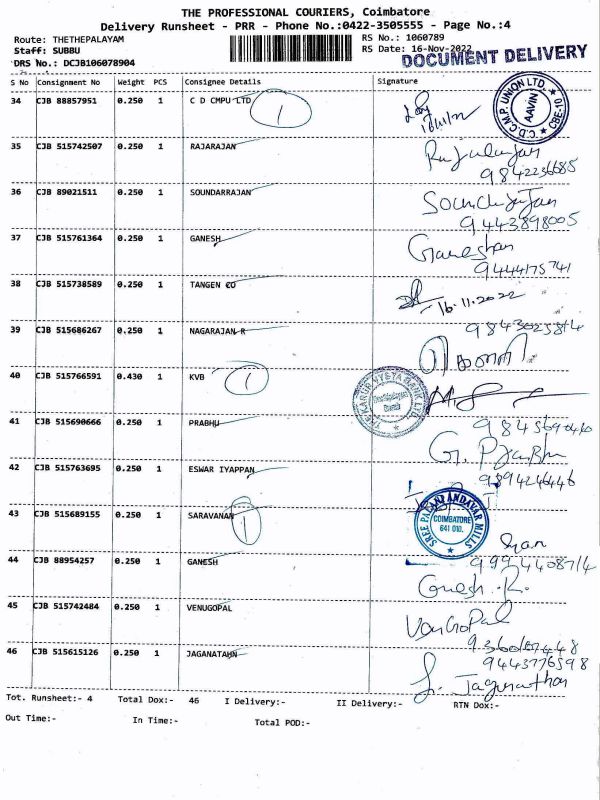 THE PROFESSIONAL COURIERS, Coimbatore
Delivery Runsheet - PRR - Phone No.:0422-3505555 - Page No.:4
Route: THETHEPALAYAM RS No.: 1060789
Staff: SUBBU RS Date: 16-Nov-2022
DOCUMENT DELIVERY
DRS No.: DCJB106078904
S No Consignment No Weight PCS Consignee Details Signature
34 CJB 88857951 0.250 1 C D CMPU LTD 1
16/11/22
C.D.C.M.P. UNION LTD. CBE-10 AAVIN
35 CJB 515742507 0.250 1 RAJARAJAN
Rajarajan
9842236685
36 CJB 89021511 0.250 1 SOUNDARRAJAN
9443898005
37 CJB 515761364 0.250 1 GANESH
Ganeshan
9444175741
38 CJB 515738589 0.250 1 TANGEN CO
16.11.2022
39 CJB 515686267 0.250 1 NAGARAJAN R
9843025814
40 CJB 515766591 0.430 1 KVB 1
THE KARUR VYSYA BANK LTD.
41 CJB 515690666 0.250 1 PRABHU
G. Prabhu
42 CJB 515763695 0.250 1 ESWAR IYAPPAN
9894246446
43 CJB 515689155 0.250 1 SARAVANAN 1
SREE PALANI ANDAVAR MILLS COIMBATORE 641 010.
44 CJB 88954257 0.250 1 GANESH
9994408714
Ganesh.K.
45 CJB 515742484 0.250 1 VENUGOPAL
VenGoPal
46 CJB 515615126 0.250 1 JAGANATAHN
9443776598
J. Jaganathan
Tot. Runsheet:- 4 Total Dox:- 46 I Delivery:- II Delivery:- RTN Dox:-
Out Time:- In Time:- Total POD:-